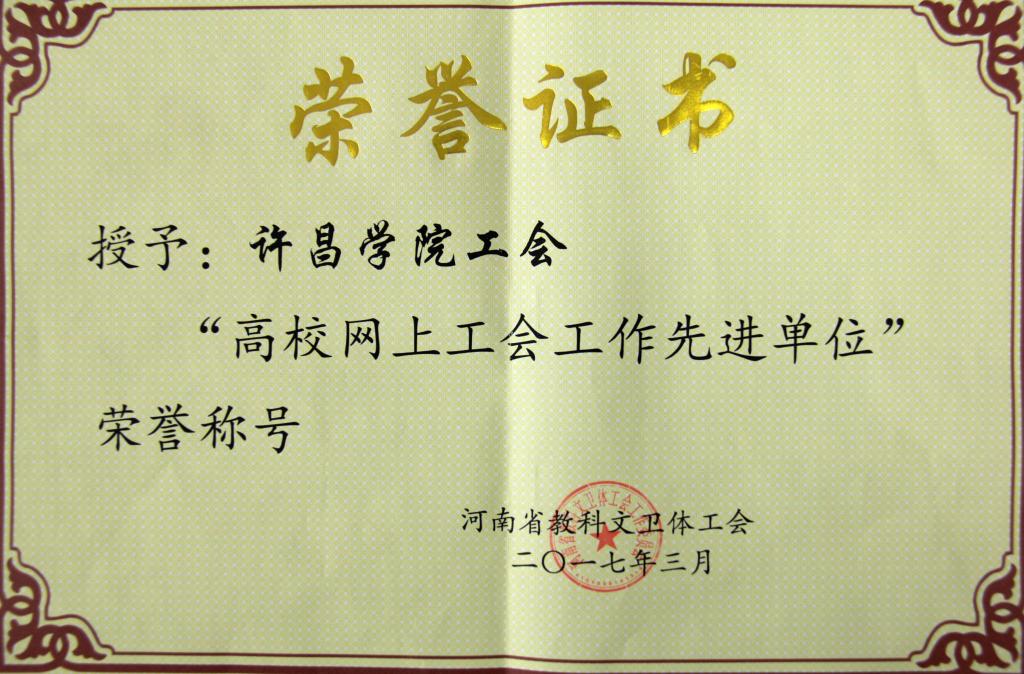 荣誉证书
授予：许昌学院工会
“高校网上工会工作先进单位”
荣誉称号
河南省教科文卫体工会
二〇一七年三月